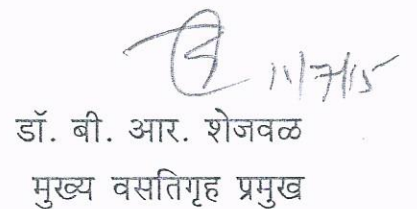 11/7/15
डॉ. बी. आर. शेजवळ
मुख्य वसतिगृह प्रमुख